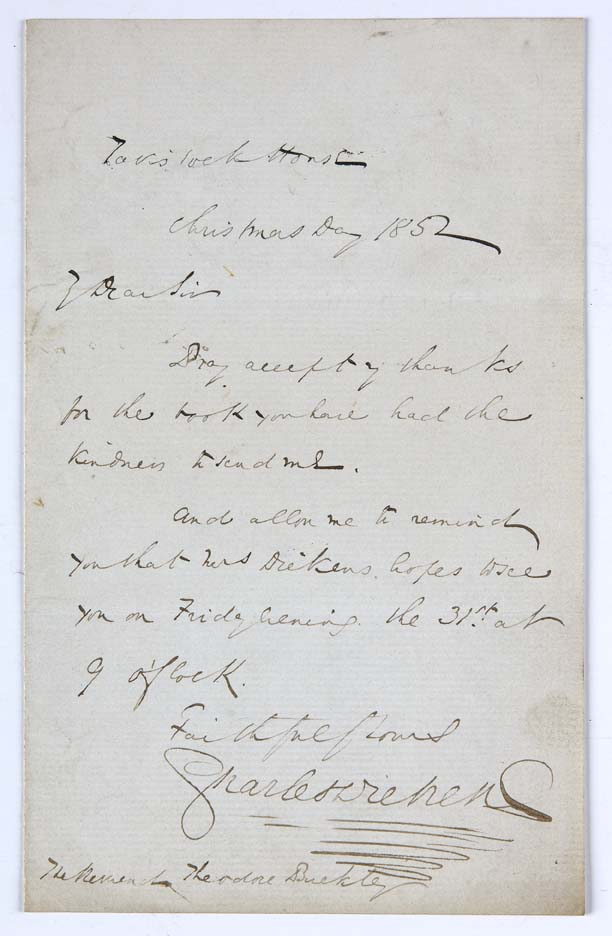 Tavistock House
Christmas Day 1852
My Dear Sir
Pray accept my thanks
for the book you have had the
kindness to send me.
And allow me to remind
you that Mrs Dickens hopes to see
you on Friday Evening the 31st. at
9 o'Clock.
Faithfully Yours
Charles Dickens
The Reverend Theodore Buckley